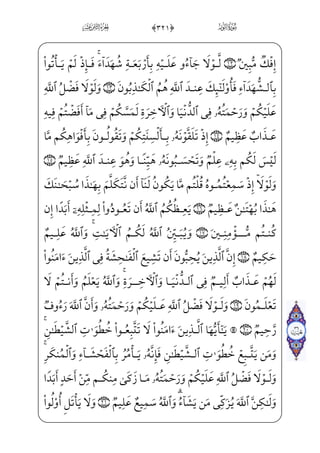 سُورَةُ النُّورِ
الجُزْءُ الثَّامِنَ عَشَرَ
إِفْكٌ مُّبِينٌ ۝١٢ لَّوْلَا جَآءُو عَلَيْهِ بِأَرْبَعَةِ شُهَدَآءَ ۚ فَإِذْ لَمْ يَأْتُوا۟
بِٱلشُّهَدَآءِ فَأُو۟لَٰٓئِكَ عِندَ ٱللَّهِ هُمُ ٱلْكَٰذِبُونَ ۝١٣ وَلَوْلَا فَضْلُ ٱللَّهِ
عَلَيْكُمْ وَرَحْمَتُهُۥ فِى ٱلدُّنْيَا وَٱلْءَاخِرَةِ لَمَسَّكُمْ فِى مَآ أَفَضْتُمْ فِيهِ
عَذَابٌ عَظِيمٌ ۝١٤ إِذْ تَلَقَّوْنَهُۥ بِأَلْسِنَتِكُمْ وَتَقُولُونَ بِأَفْوَاهِكُم مَّا
لَيْسَ لَكُم بِهِۦ عِلْمٌ وَتَحْسَبُونَهُۥ هَيِّنًا وَهُوَ عِندَ ٱللَّهِ عَظِيمٌ ۝١٥
وَلَوْلَآ إِذْ سَمِعْتُمُوهُ قُلْتُم مَّا يَكُونُ لَنَآ أَن نَّتَكَلَّمَ بِهَٰذَا سُبْحَٰنَكَ
هَٰذَا بُهْتَٰنٌ عَظِيمٌ ۝١٦ يَعِظُكُمُ ٱللَّهُ أَن تَعُودُوا۟ لِمِثْلِهِۦٓ أَبَدًا إِن
كُنتُم مُّؤْمِنِينَ ۝١٧ وَيُبَيِّنُ ٱللَّهُ لَكُمُ ٱلْءَايَٰتِ ۚ وَٱللَّهُ عَلِيمٌ
حَكِيمٌ ۝١٨ إِنَّ ٱلَّذِينَ يُحِبُّونَ أَن تَشِيعَ ٱلْفَٰحِشَةُ فِى ٱلَّذِينَ ءَامَنُوا۟
لَهُمْ عَذَابٌ أَلِيمٌ فِى ٱلدُّنْيَا وَٱلْءَاخِرَةِ ۚ وَٱللَّهُ يَعْلَمُ وَأَنتُمْ لَا
تَعْلَمُونَ ۝١٩ وَلَوْلَا فَضْلُ ٱللَّهِ عَلَيْكُمْ وَرَحْمَتُهُۥ وَأَنَّ ٱللَّهَ رَءُوفٌ
رَّحِيمٌ ۝٢٠ ۞ يَٰٓأَيُّهَا ٱلَّذِينَ ءَامَنُوا۟ لَا تَتَّبِعُوا۟ خُطُوَٰتِ ٱلشَّيْطَٰنِ ۚ
وَمَن يَتَّبِعْ خُطُوَٰتِ ٱلشَّيْطَٰنِ فَإِنَّهُۥ يَأْمُرُ بِٱلْفَحْشَآءِ وَٱلْمُنكَرِ ۚ
وَلَوْلَا فَضْلُ ٱللَّهِ عَلَيْكُمْ وَرَحْمَتُهُۥ مَا زَكَىٰ مِنكُم مِّنْ أَحَدٍ أَبَدًا
وَلَٰكِنَّ ٱللَّهَ يُزَكِّى مَن يَشَآءُ ۗ وَٱللَّهُ سَمِيعٌ عَلِيمٌ ۝٢١ وَلَا يَأْتَلِ أُو۟لُوا۟